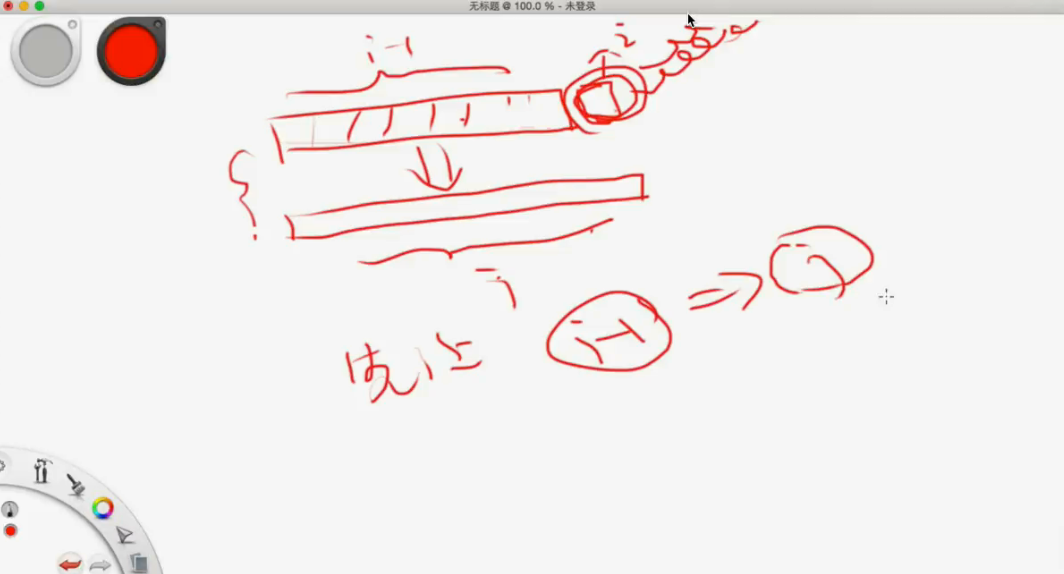 无标题 @ 100.0 % - 未登录
i-1
i
j
i-1
j